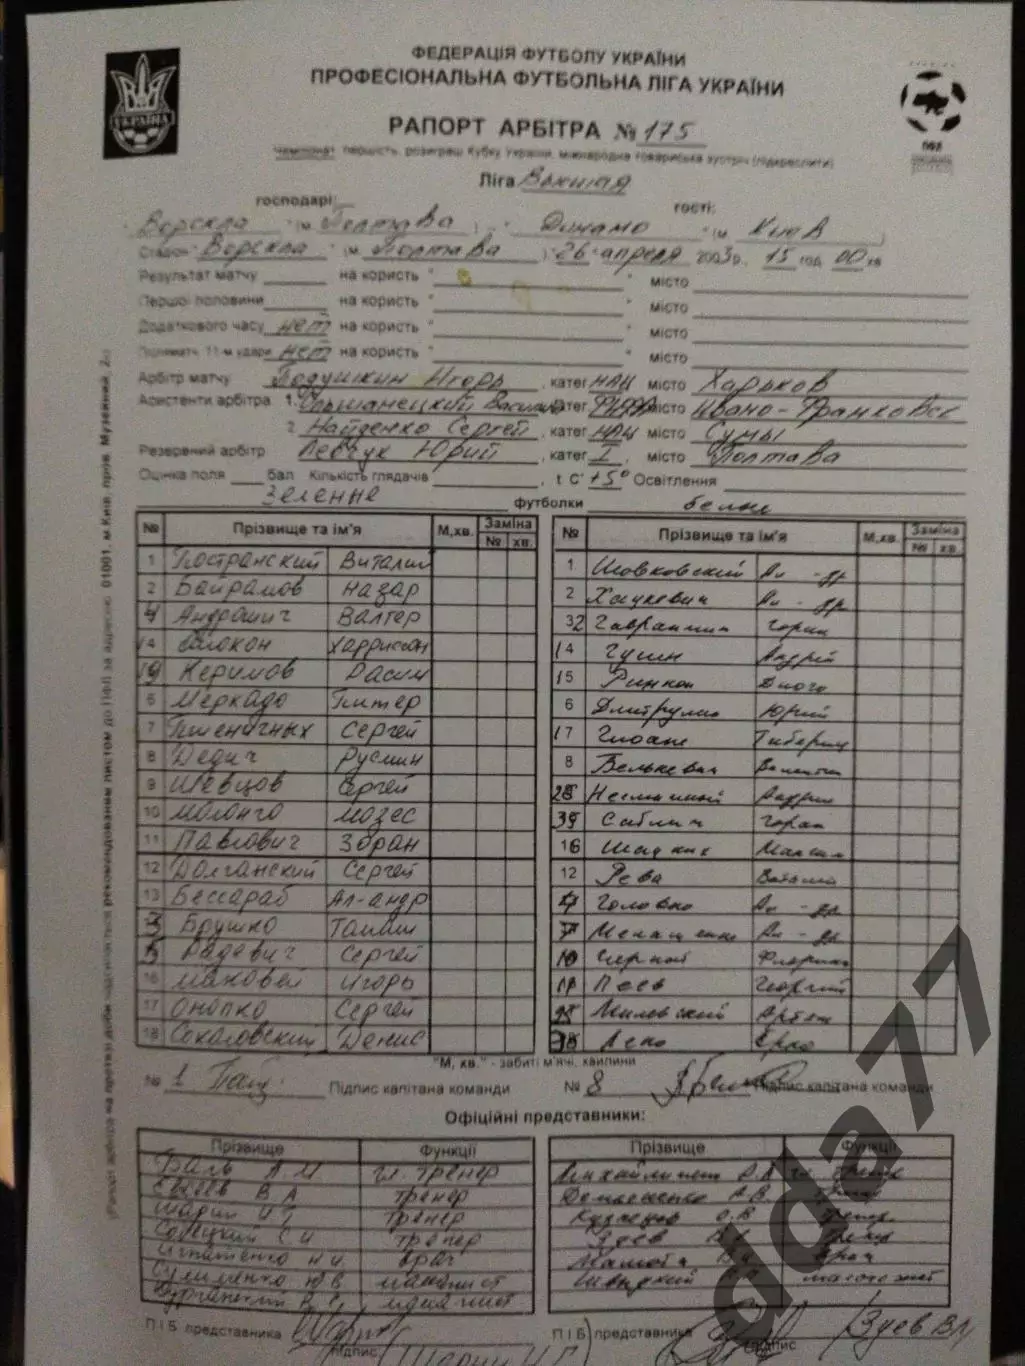 ФЕДЕРАЦІЯ ФУТБОЛУ УКРАЇНИ
ПРОФЕСІОНАЛЬНА ФУТБОЛЬНА ЛІГА УКРАЇНИ
УКРАЇНА
РАПОРТ АРБІТРА № 175
Чемпіонат, першість, розіграш Кубку України, міжнародна товариська зустріч (підкреслити)
Ліга Вышая
господарі: гості:
"Ворскла" (м. Полтава) - "Динамо" (м. Киев)
Стадіон "Ворскла" (м. Полтава) 26 апреля 2003р. 15 год 00 хв
Результат матчу на користь " " місто
Першої половини на користь " " місто
Додаткового часу нет на користь " " місто
11-м удари нет на користь " " місто
Арбітр матчу Подушкин Игорь, катег. нац місто Харьков
Асистенти арбітра 1. Ольшанецкий катег. місто Ивано-Франковск
2. Найденко Сергей, катег. нац місто Сумы
Резервний арбітр Левчук Юрий, катег. I, місто Полтава
Оцінка поля бал Кількість глядачів t C° +5° Освітлення
Зеленые футболки белые
№ Прізвище та ім'я М,хв. Заміна № хв.
1 Постранский Виталий
2 Байрамов Назар
4 Андрашич Валтер
14 Омокон Харрисон
19 Керимов Расим
6 Меркадо Питер
7 Пшеничных Сергей
8 Дедич Русмин
9 Шевцов Сергей
10 Молонго Мозес
11 Павлович Зоран
12 Долганский Сергей
13 Бессараб Ал-андр
3 Брушко
5 Радевич Сергей
16 Маковей Игорь
17 Онопко Сергей
18 Соколовский Денис
№ Прізвище та ім'я М,хв. Заміна № хв.
1 Шовковский Ал-др
2 Хацкевич Ал-др
32 Гавранчич Горан
14 Гусин Андрей
15 Ринкон Диого
6 Дмитрулин Юрий
17 Гиоане Тибериу
8 Белькевич Валентин
Несмачный Андрей
Саблич Горан
16 Шацких Максим
12 Рева Виталий
4 Головко Ал-др
7 Мелащенко Ал-др
10 Чернат Флорин
11 Пеев Георгий
Милевский Артем
Леко Ерко
"М, хв." - забиті м'ячі, хвилини
№ 1 Підпис капітана команди № 8 Підпис капітана команди
Офіційні представники:
Прізвище Функції Прізвище Функції
Баль А.М гл. тренер
Евсеев В А тренер
Шарий И Г тренер
Совецкий С И тренер
Игнатенко Н И. врач
Сулименко Ю В массажист
массажист
Михайличенко А А гл. тренер
Демьяненко А В тренер
Кузнецов О В тренер
Зуев В Л тренер
Малюта В И врач
Швыдкий массажист
П І Б представника підпис Шарий И Г
П І Б представника підпис Зуев ВЛ
Рапорт арбітра на протязі доби надсилається рекомендованим листом до ПФЛ за адресою: 01001, м.Київ, пров. Музейний, 2
dda77